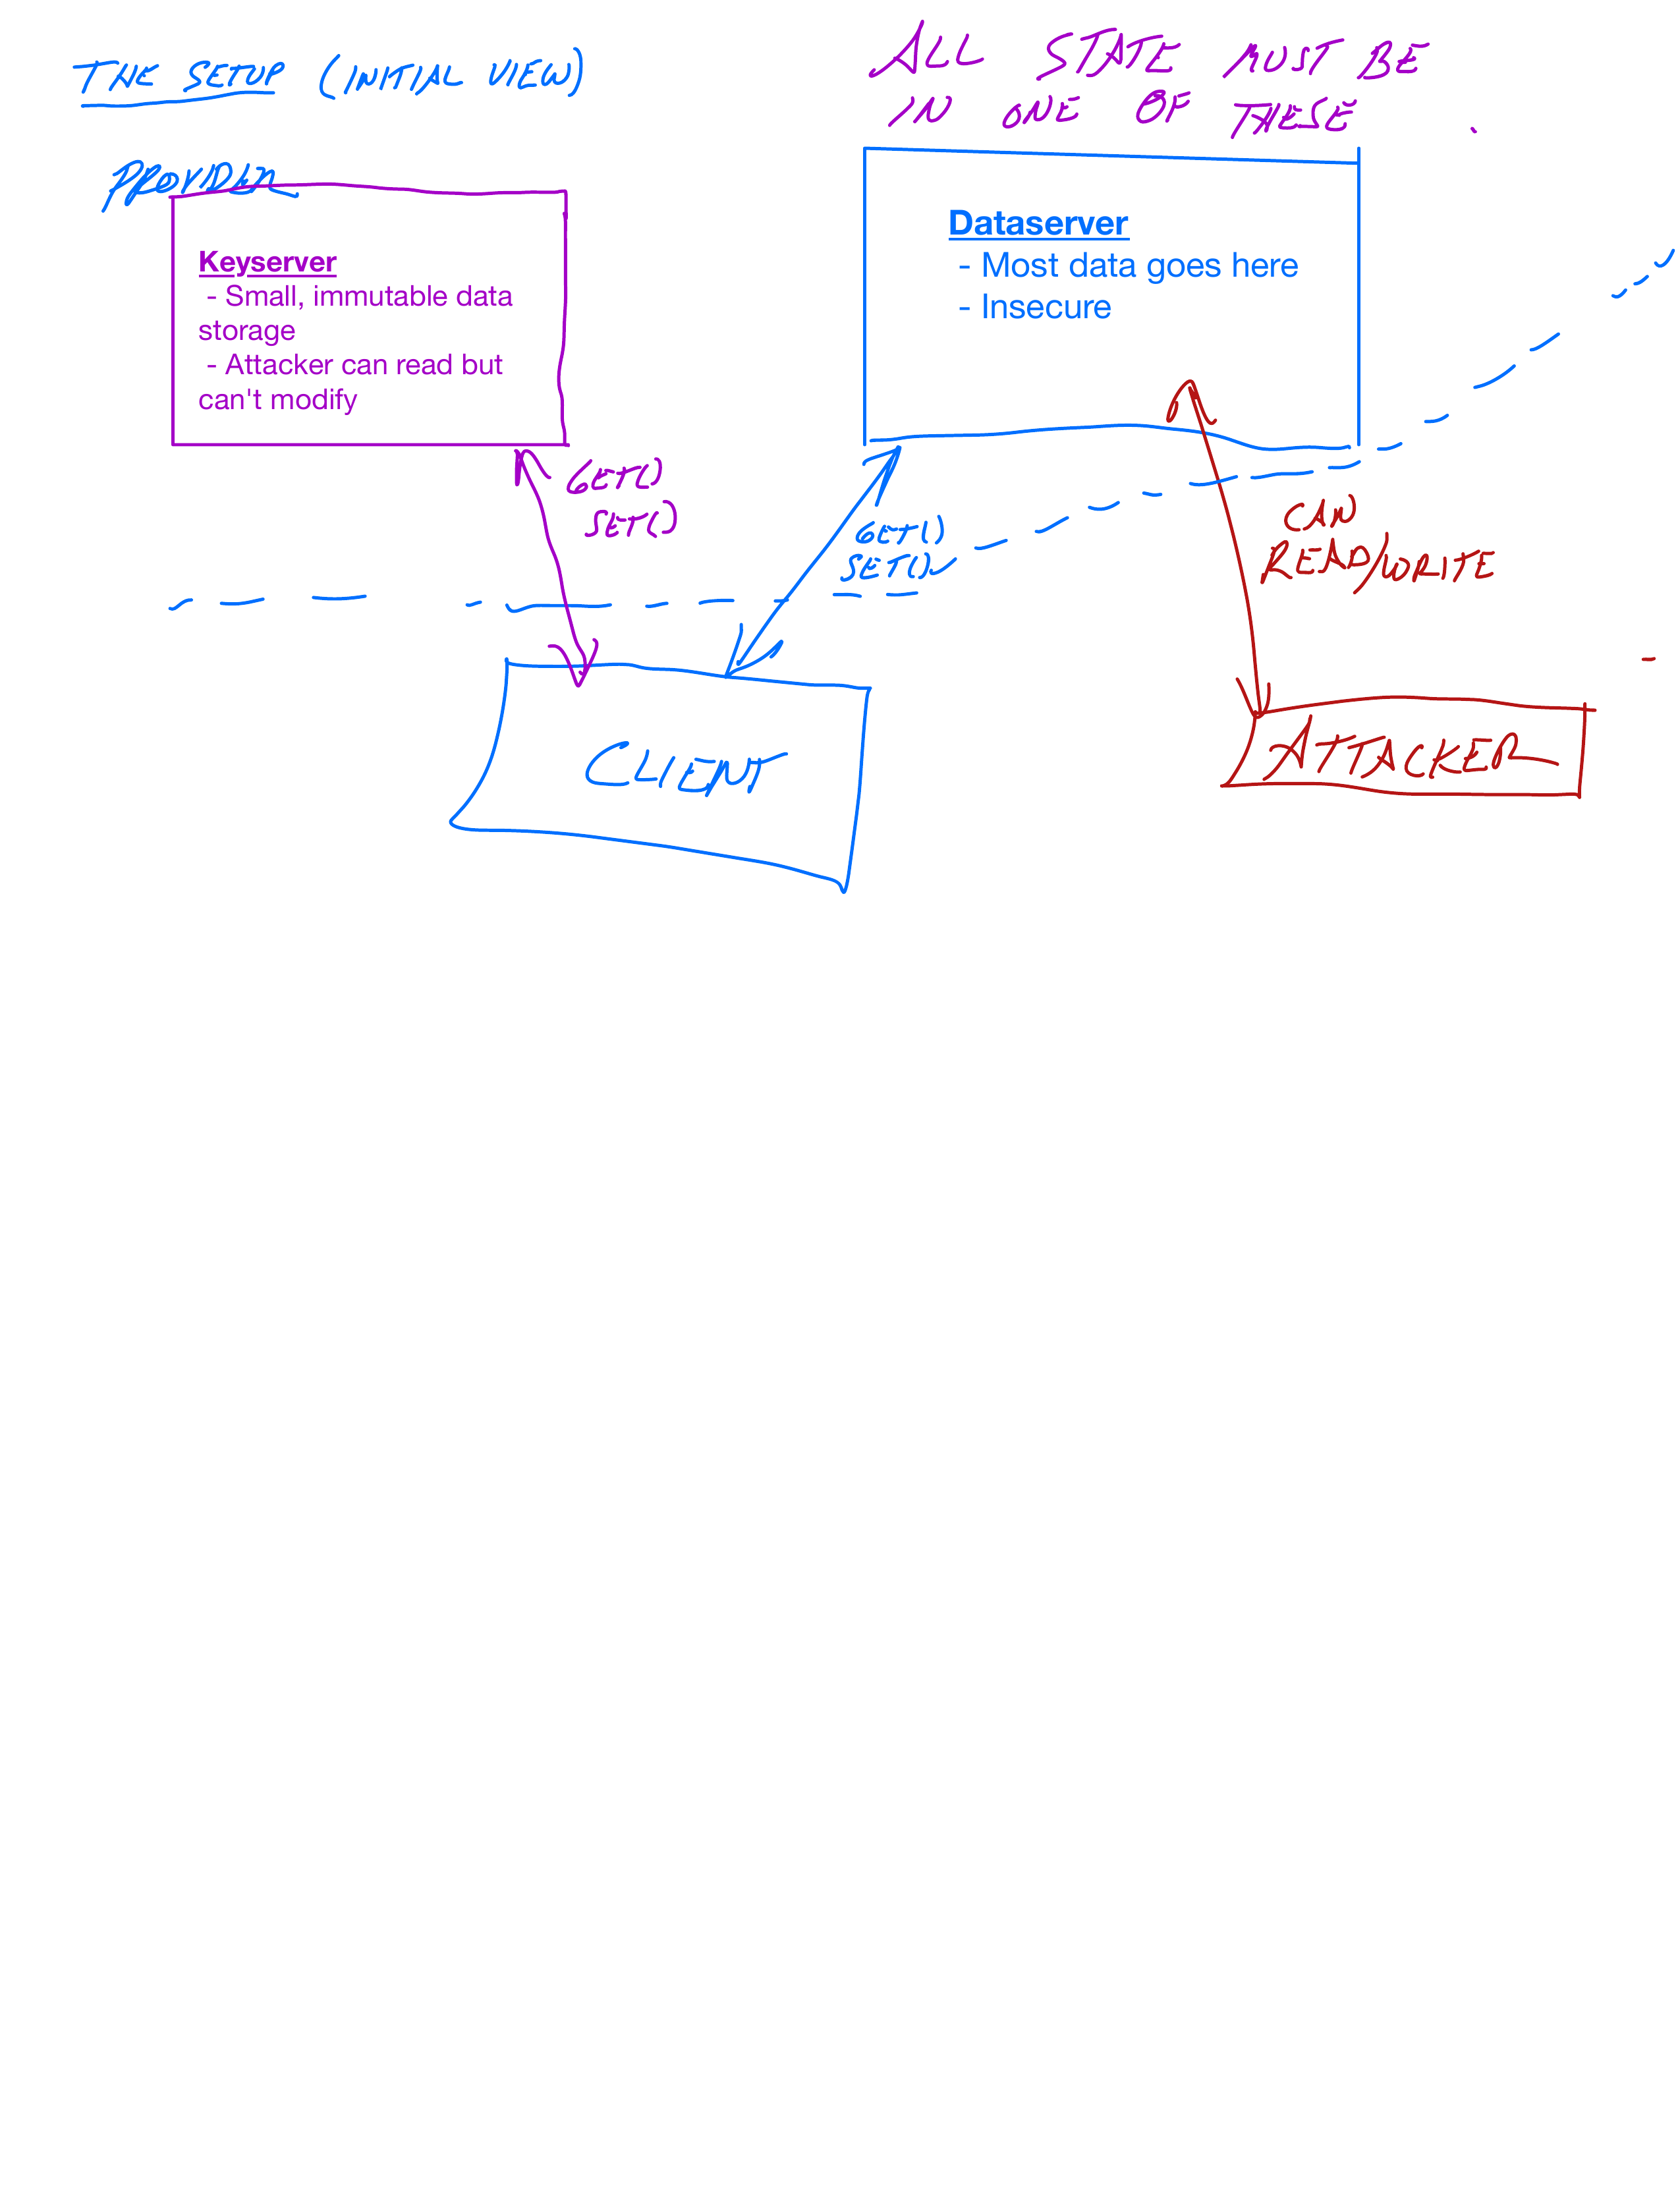 THE SETUP (INITIAL VIEW)
ALL STATE MUST BE
IN ONE OF THESE
PROVIDER
Keyserver
- Small, immutable data
storage
- Attacker can read but
can't modify
Dataserver
- Most data goes here
- Insecure
GET()
SET()
GET()
SET()
CAN
READ/WRITE
CLIENT
ATTACKER